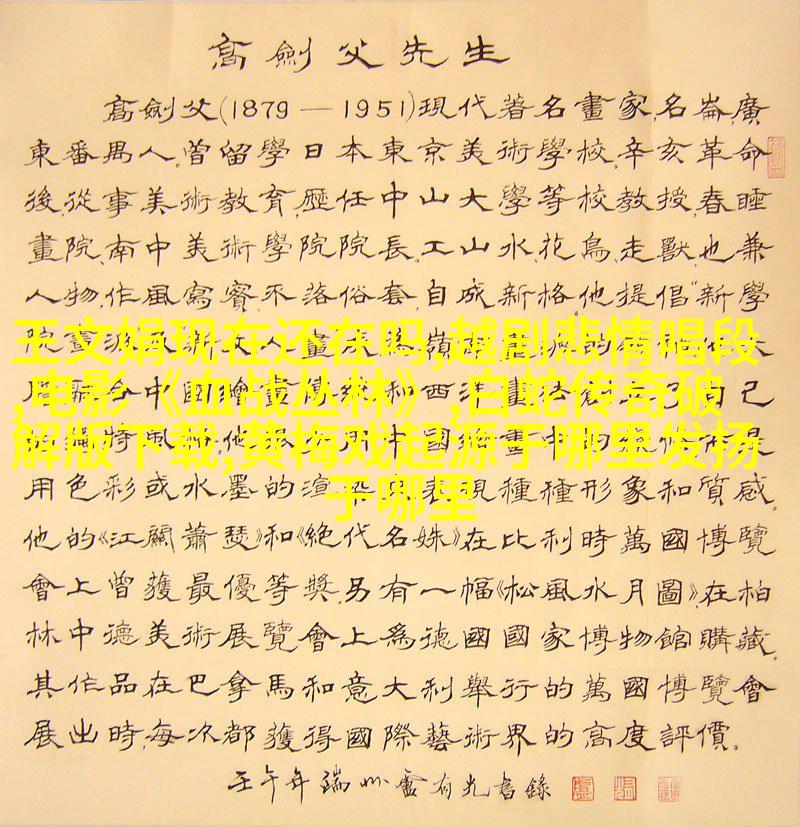 高劍父先生
高劍父(1879—1951)現代著名畫家,名崙,廣
東番禺人.曾留學日本東京美術學校.辛亥革命
後,從事美術教育,歷任中山大學等校教授,春睡
畫院,南中美術學院院長.工山水,花鳥,走獸,也兼
人物,作風寫實,不落俗套,自成新格.他提倡"新學
王文娟现在还在吗,越剧悲情唱段
,电影《血战丛林》,白蛇传奇破
解版下载,黄梅戏起源于哪里发扬
于哪里
用色彩或水墨的渲染 表現種種形象和質感.
他的《江關蕭瑟》和《絕代名姝》在比利時萬國博覽
會上曾獲最優等獎.另有一幅《松風水月圖》,在柏
林中德美術展覽會上爲德國國家博物館購藏.
其作品在巴拿馬和意大利舉行的萬國博覽會
展出時,每次都獲得國際藝術界的高度評價。
壬午年端州盧有光書錄